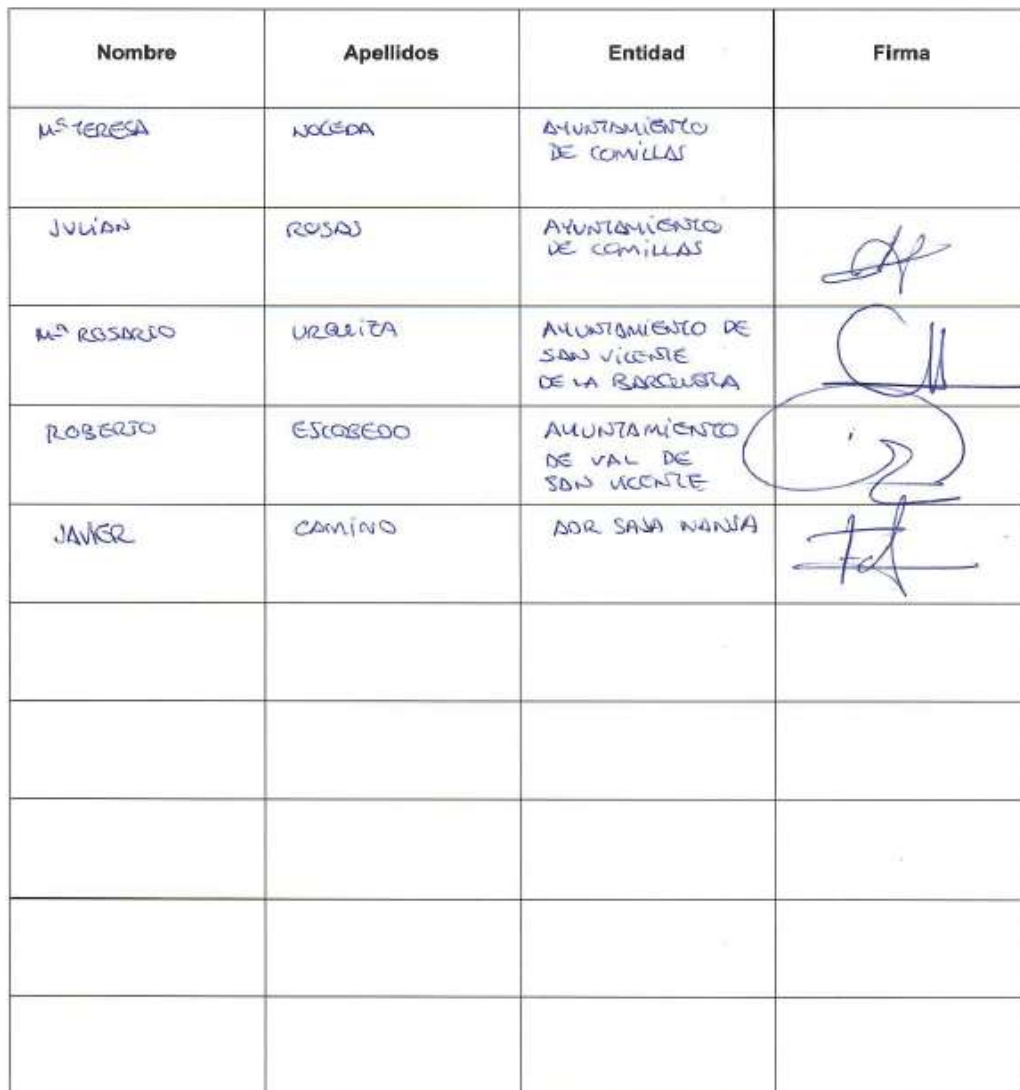 Nombre Apellidos Entidad Firma
Mª TERESA NOCEDA AYUNTAMIENTO
DE COMILLAS
JULIÁN ROSAS AYUNTAMIENTO
DE COMILLAS
Mª ROSARIO URQUIZA AYUNTAMIENTO DE
SAN VICENTE
DE LA BARQUERA
ROBERTO ESCOBEDO AYUNTAMIENTO
DE VAL DE
SAN VICENTE
JAVIER CAMINO ADR SAJA NANSA